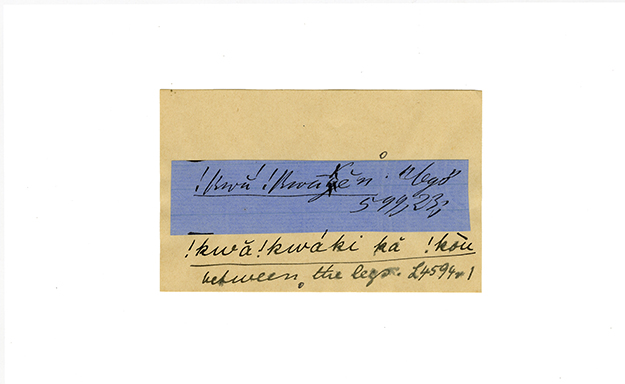 !kwă !kwāken. "legs"
599, 23,
!kwă!kwáki kă !kōu
between the legs. L4594.1